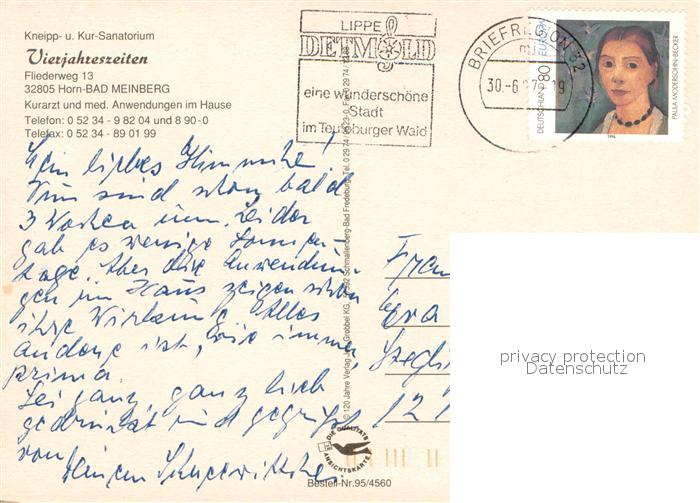 Kneipp- u. Kur-Sanatorium
Vierjahreszeiten
Fliederweg 13
32805 Horn-BAD MEINBERG
Kurarzt und med. Anwendungen im Hause
Telefon: 0 52 34 - 9 82 04 und 8 90-0
Telefax: 0 52 34 - 89 01 99
LIPPE
DETMOLD
eine wunderschöne
Stadt
im Teutoburger Wald
BRIEFREGION 32
30.-6
DEUTSCHLAND 80 EUROPA
PAULA MODERSOHN-BECKER
1996
Mein liebes
Nun sind schon bald
3 Wochen um. Leider
gab es wenige Sonnen-
tage. Aber die Anwendun-
gen im Haus zeigen schon
ihre Wirkung. Alles
andere ist, wie immer,
prima.
Sei ganz, ganz lieb
gedrückt und gegrüßt
von
Deinem
Frau
Eva
12
© 120 Jahre Verlag Jos. Grobbel KG, Schmallenberg-Bad Fredeburg
DIE QUALITÄTS
ANSICHTSKARTE
Bestell-Nr. 95/4560
privacy protection
Datenschutz